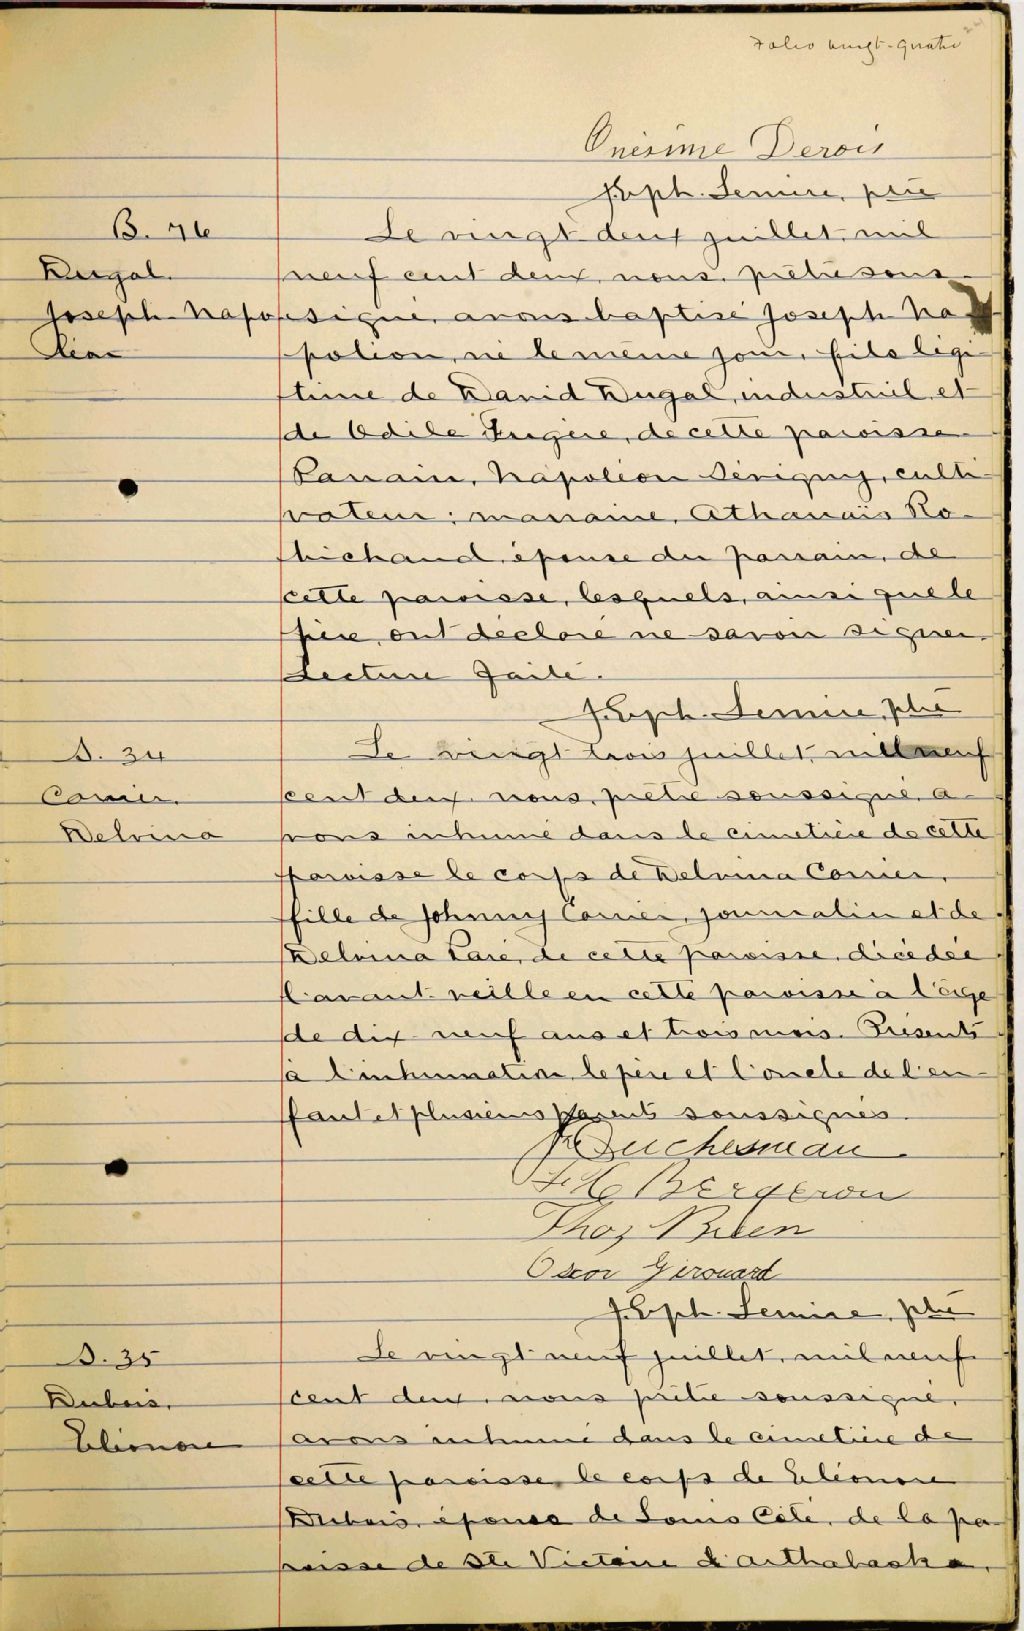 Folio vingt-quatre
24
Onésime Derois
J. Eph. Lemire, ptre
B. 76
Le vingt deux juillet, mil
Dugal.
neuf cent deux, nous, prêtre sous-
Joseph Napo-
signé, avons baptisé Joseph Na-
léon
poléon, né le même jour, fils légi-
time de David Dugal, industriel, et
de Odile Fugère, de cette paroisse.
Parrain, Napoléon Sévigny, culti-
vateur; marraine, Athanaïs Ro-
bichaud, épouse du parrain, de
cette paroisse, lesquels, ainsi que le
père, ont déclaré ne savoir signer.
Lecture faite.
J. Eph. Lemire, ptre
S. 34
Le vingt trois juillet, mil neuf
Carrier,
cent deux, nous, prêtre soussigné, a-
Delvina
vons inhumé dans le cimetière de cette
paroisse le corps de Delvina Carrier,
fille de Johnny Carrier, journalier et de
Delvina Paré, de cette paroisse, décédée
l'avant-veille en cette paroisse à l'âge
de dix-neuf ans et trois mois. Présents
à l'inhumation, le père et l'oncle de l'en-
fant et plusieurs parents soussignés.
Duchesneau
Bergeron
Thos
Oscar Girouard
J. Eph. Lemire, ptre
S. 35
Le vingt neuf juillet, mil neuf
Dubois,
cent deux, nous prêtre soussigné,
Eléonore
avons inhumé dans le cimetière de
cette paroisse, le corps de Eléonore
Dubois, épouse de Louis Côté, de la pa-
roisse de Ste Victoire d'Arthabaska,